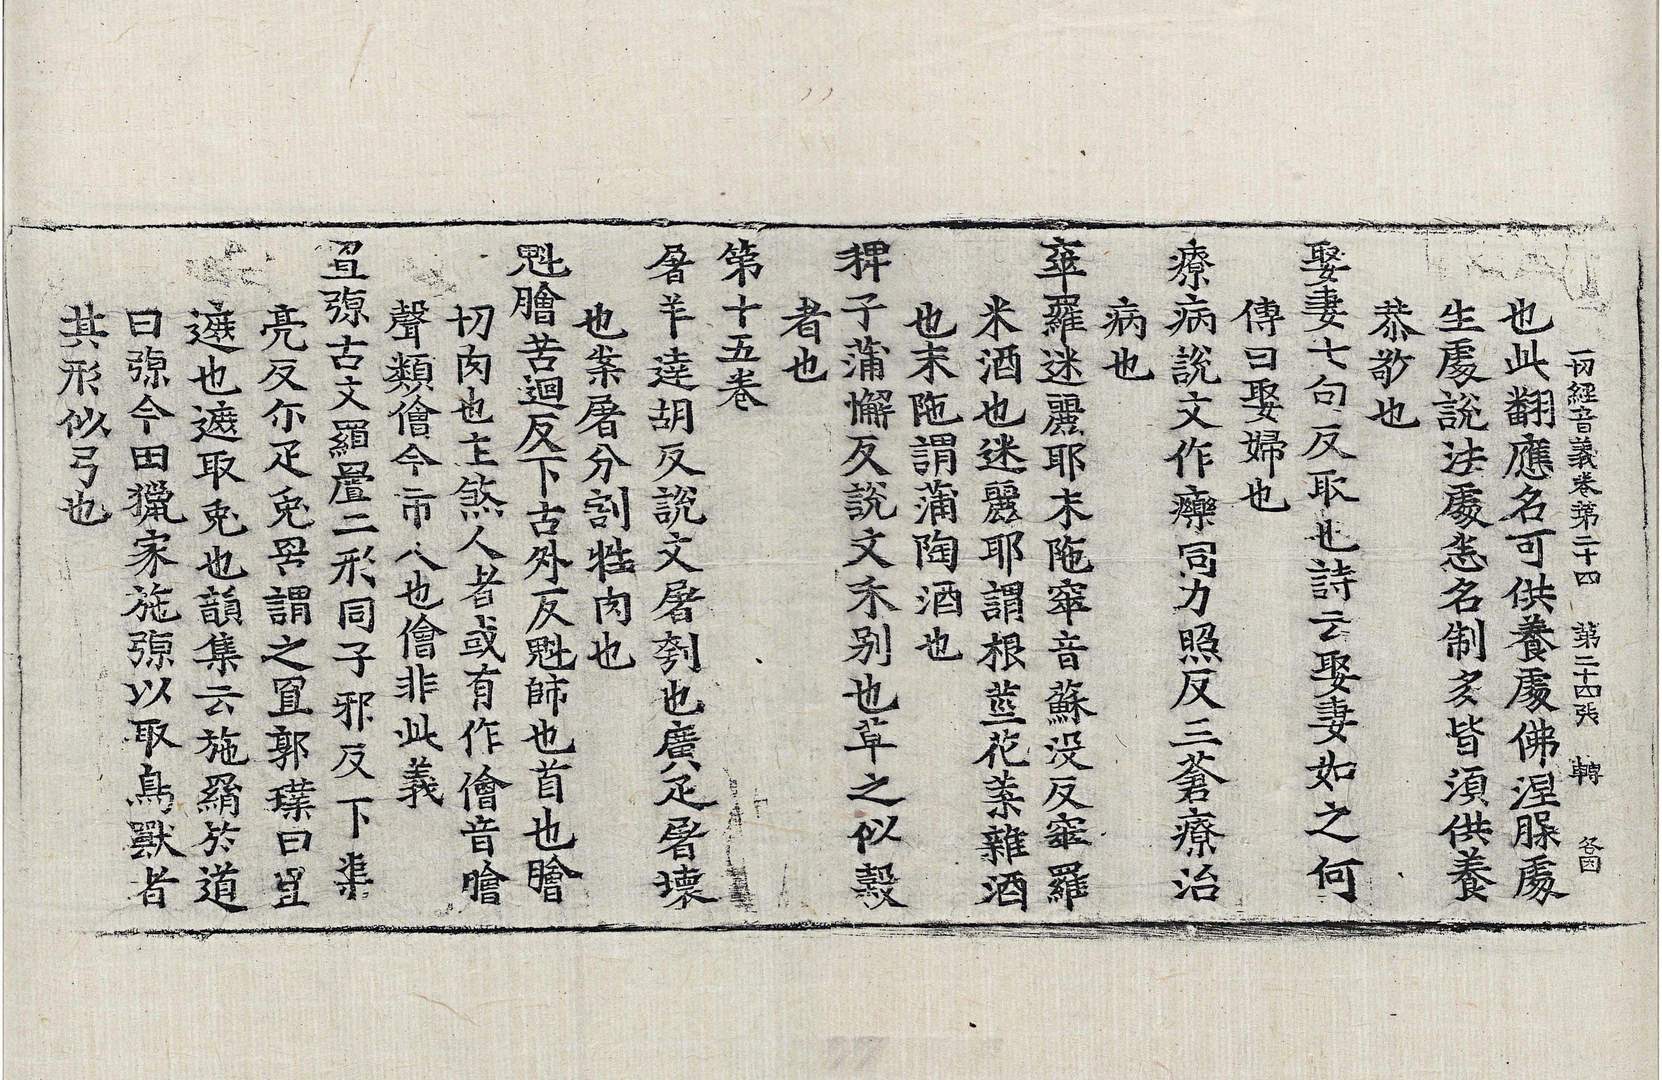 一切經音義卷第二十四　第二十四張　轉
也此翻應名可供養處佛涅脲處
生處說法處悉名制多皆須供養
恭敬也
娶妻七句反取也詩云娶妻如之何
傳曰娶婦也
療病說文作㿋同力照反三蒼療治
病也
窣羅迷麗耶末陁窣音蘇没反窣羅
米酒也迷麗耶謂根莖花葉雜酒
也末陁謂蒲陶酒也
稗子蒲懈反說文禾别也草之似穀
者也
第十五卷
屠羊達胡反說文屠刳也廣疋屠壞
也案屠分割牲肉也
魁膾苦迴反下古外反魁師也首也膾
切肉也主煞人者或有作儈音膾
聲類儈今市人也儈非此義
罝弶古文罝二形同子邪反下渠
亮反尓疋兔罟謂之罝郭璞曰罝
遮也遮取兔也韻集云施罥於道
曰弶今田獵家施弶以取鳥獸者
其形似弓也